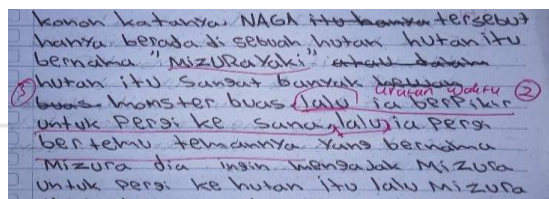 konon katanya. NAGA itu hanya tersebut
hanya berada di sebuah hutan hutan itu
bernama "MizuRaYaki" atau dalam
hutan itu sangat banyak hewan
urutan waktu ②
③ buas monster buas lalu ia berpikir
untuk pergi ke sana, lalu ia pergi
bertemu temannya yang bernama
Mizura dia ingin mengajak Mizura
untuk pergi ke hutan itu lalu Mizura